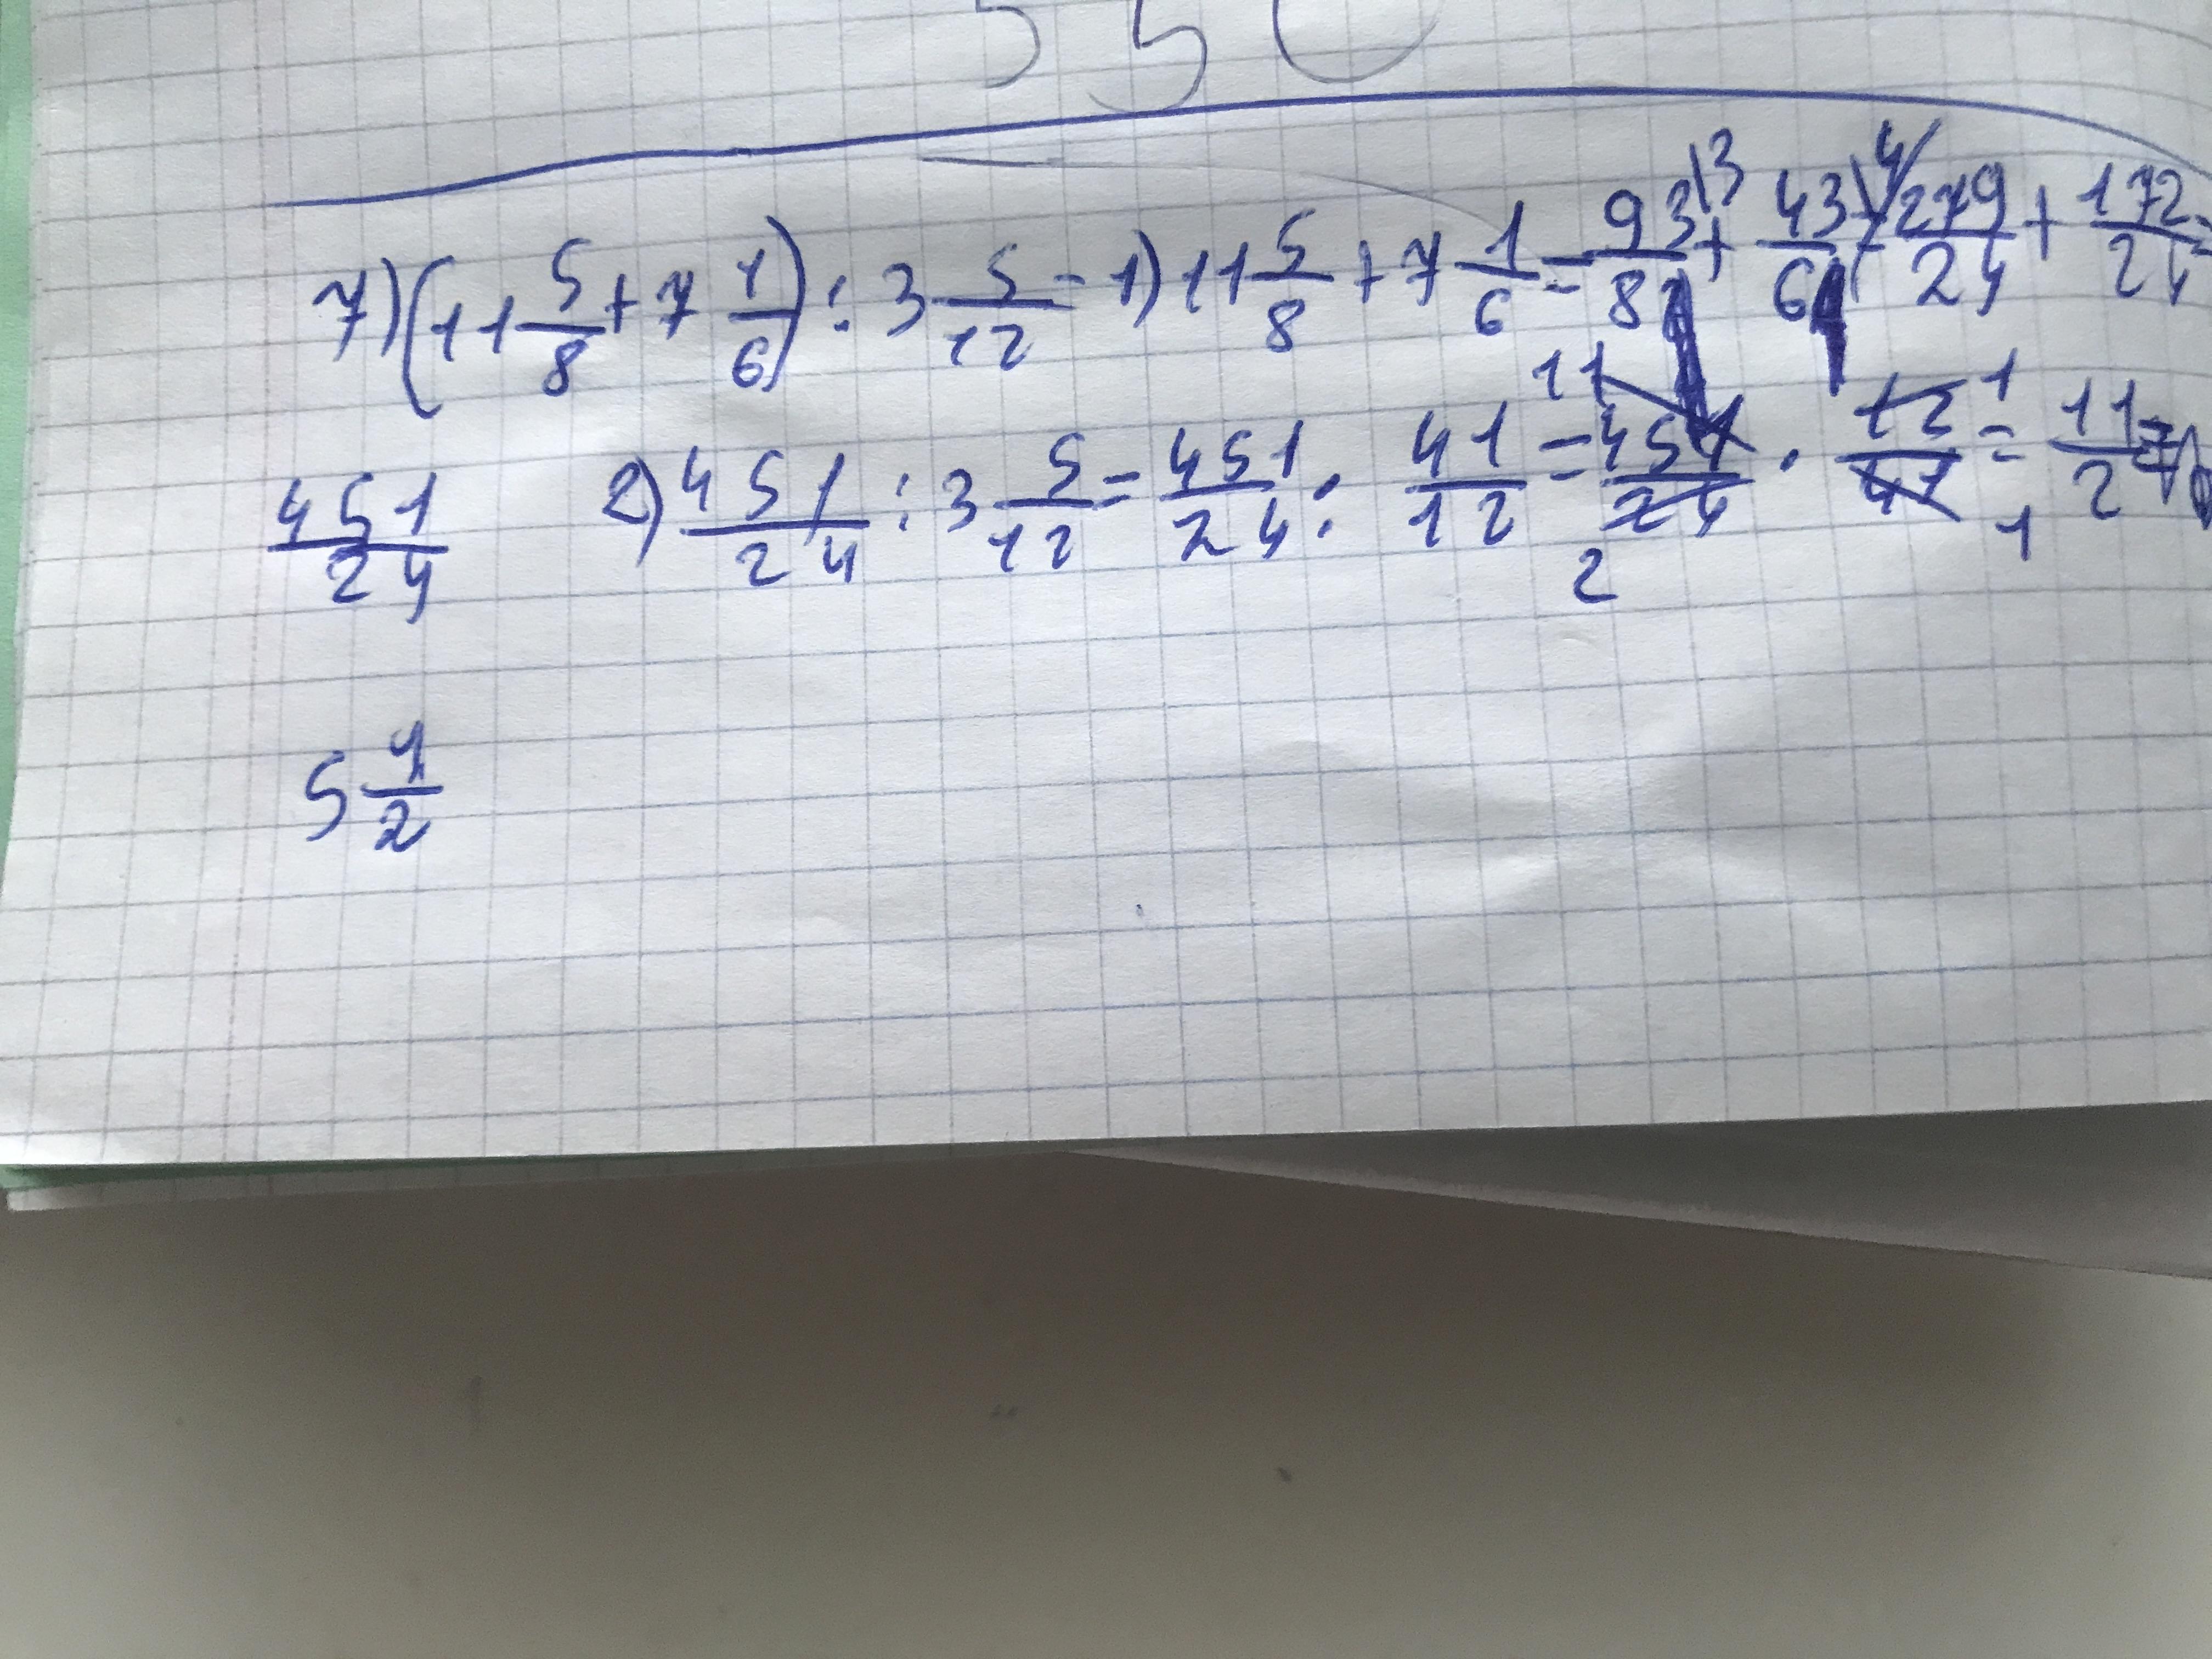 550
7)(11 5/8 + 7 1/6) : 3 5/12 = 1) 11 5/8 + 7 1/6 = 93/8 \3 + 43/6 \4 = 279/24 + 172/24 =
451/24 2) 451/24 : 3 5/12 = 451/24 : 41/12 = 11 451/24 2 · 12/41 1 1 = 11/2 =
5 1/2